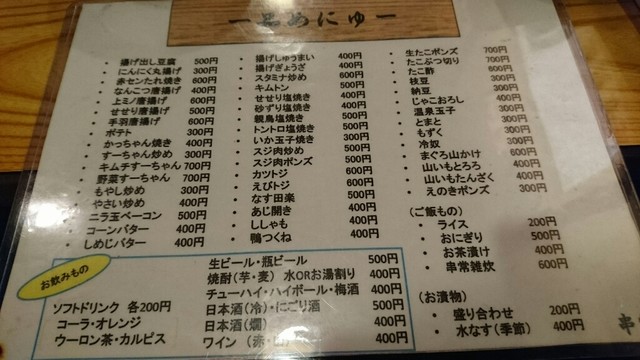 一品めにゅー
・揚げ出し豆腐 500円
・にんにく丸揚げ 300円
・赤センたれ焼き 600円
・なんこつ唐揚げ 400円
・上ミノ唐揚げ 600円
・せせり唐揚げ 500円
・手羽唐揚げ 600円
・ポテト 300円
・かっちゃん焼き 400円
・すーちゃん炒め 300円
・キムチすーちゃん 700円
・野菜すーちゃん 700円
・もやし炒め 300円
・やさい炒め 400円
・ニラ玉ベーコン 500円
・コーンバター 400円
・しめじバター 400円
・揚げしゅうまい 400円
・揚げぎょうざ 400円
・スタミナ炒め 600円
・キムトン 500円
・せせり塩焼き 400円
・砂ずり塩焼き 400円
・親鳥塩焼き 500円
・トントロ塩焼き 500円
・いか玉子焼き 300円
・スジ肉炒め 500円
・スジ肉ポンズ 500円
・カツトジ 600円
・えびトジ 600円
・なす田楽 500円
・あじ開き 400円
・ししゃも 400円
・鴨つくね 400円
・生たこポンズ 700円
・たこぶつ切り 700円
・たこ酢 600円
・枝豆 300円
・納豆 300円
・じゃこおろし 400円
・温泉玉子 300円
・とまと 300円
・もずく 300円
・冷奴 300円
・まぐろ山かけ 600円
・山いもとろろ 400円
・山いもたんざく 400円
・えのきポンズ 300円
(ご飯もの)
・ライス 200円
・おにぎり 500円
・お茶漬け 400円
・串常雑炊 600円
(お漬物)
・盛り合わせ 200円
・水なす(季節) 400円
お飲みもの
ソフトドリンク 各200円
コーラ・オレンジ
ウーロン茶・カルピス
生ビール・瓶ビール 500円
焼酎(芋・麦) 水ORお湯割り 400円
チューハイ・ハイボール・梅酒 400円
日本酒(冷)・にごり酒 500円
日本酒(燗) 400円
ワイン (赤・ 400円
串